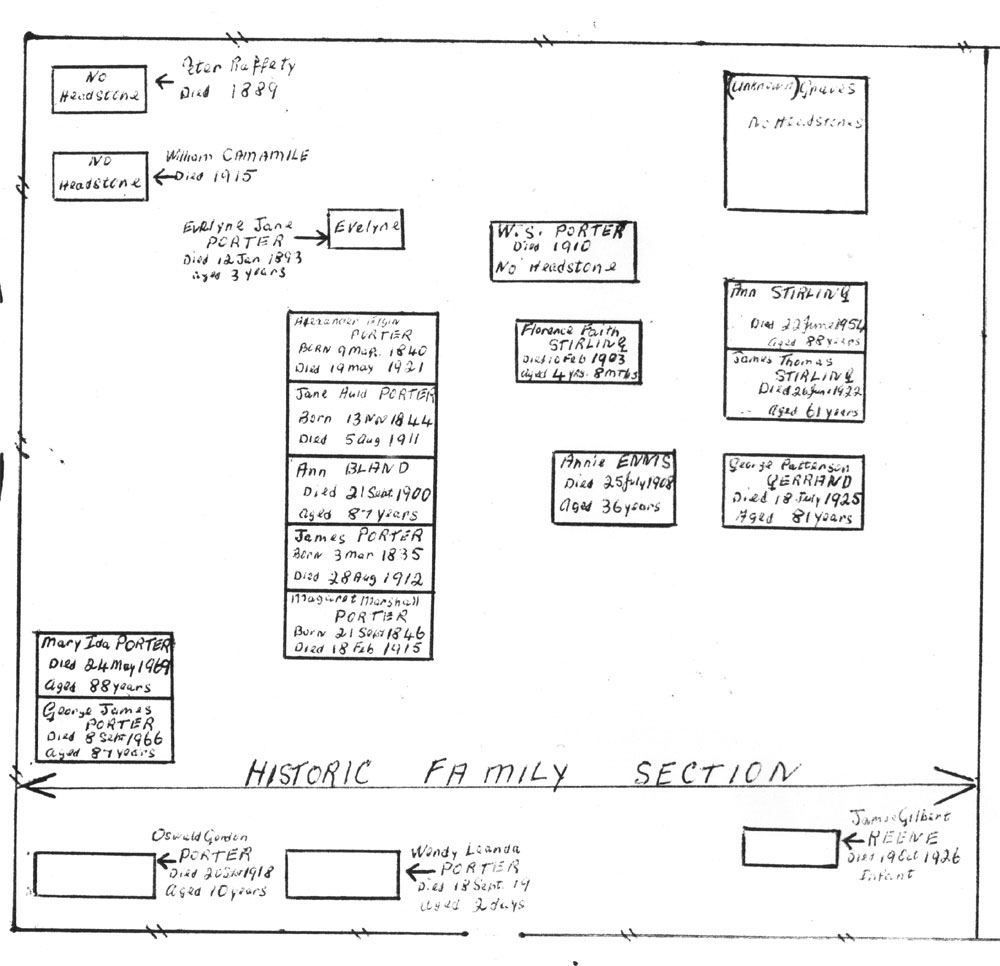 No
Headstone
Peter Raffety
Died 1889
No
Headstone
William CAMAMILE
Died 1915
Evelyne Jane
PORTER
Died 12 Jan 1893
Aged 3 years
Evelyne
W.S. PORTER
Died 1910
No Headstone
(Unknown) Graves
No Headstones
Alexander Elgin
PORTER
BORN 9 Mar. 1840
Died 19 May 1921
Jane Auld PORTER
Born 13 Nov 1844
Died 5 Aug 1911
Ann BLAND
Died 21 Sept 1900
Aged 87 years
James PORTER
Born 3 Mar 1835
Died 28 Aug 1912
Magaret Marshall
PORTER
Born 21 Sept 1846
Died 18 Feb 1915
Florence Faith
STIRLING
Died 10 Feb 1903
Aged 4 yrs. 8 mths
Annie ENNIS
Died 25 July 1908
Aged 36 years
Ann STIRLING
Died 22 June 1954
Aged 88 years
James Thomas
STIRLING
Died 26 June 1922
Aged 61 years
George Patterson
GERRAND
Died 18 July 1925
Aged 81 years
Mary Ida PORTER
Died 24 May 1969
Aged 88 years
George James
PORTER
Died 8 Sept 1966
Aged 87 years
HISTORIC FAMILY SECTION
Oswald Gordon
PORTER
Died 1918
Aged 10 years
Wendy Leanda
PORTER
Died 18 Sept. 19
Aged 2 days
James Gilbert
KEENE
Died 19 Oct 1926
Infant